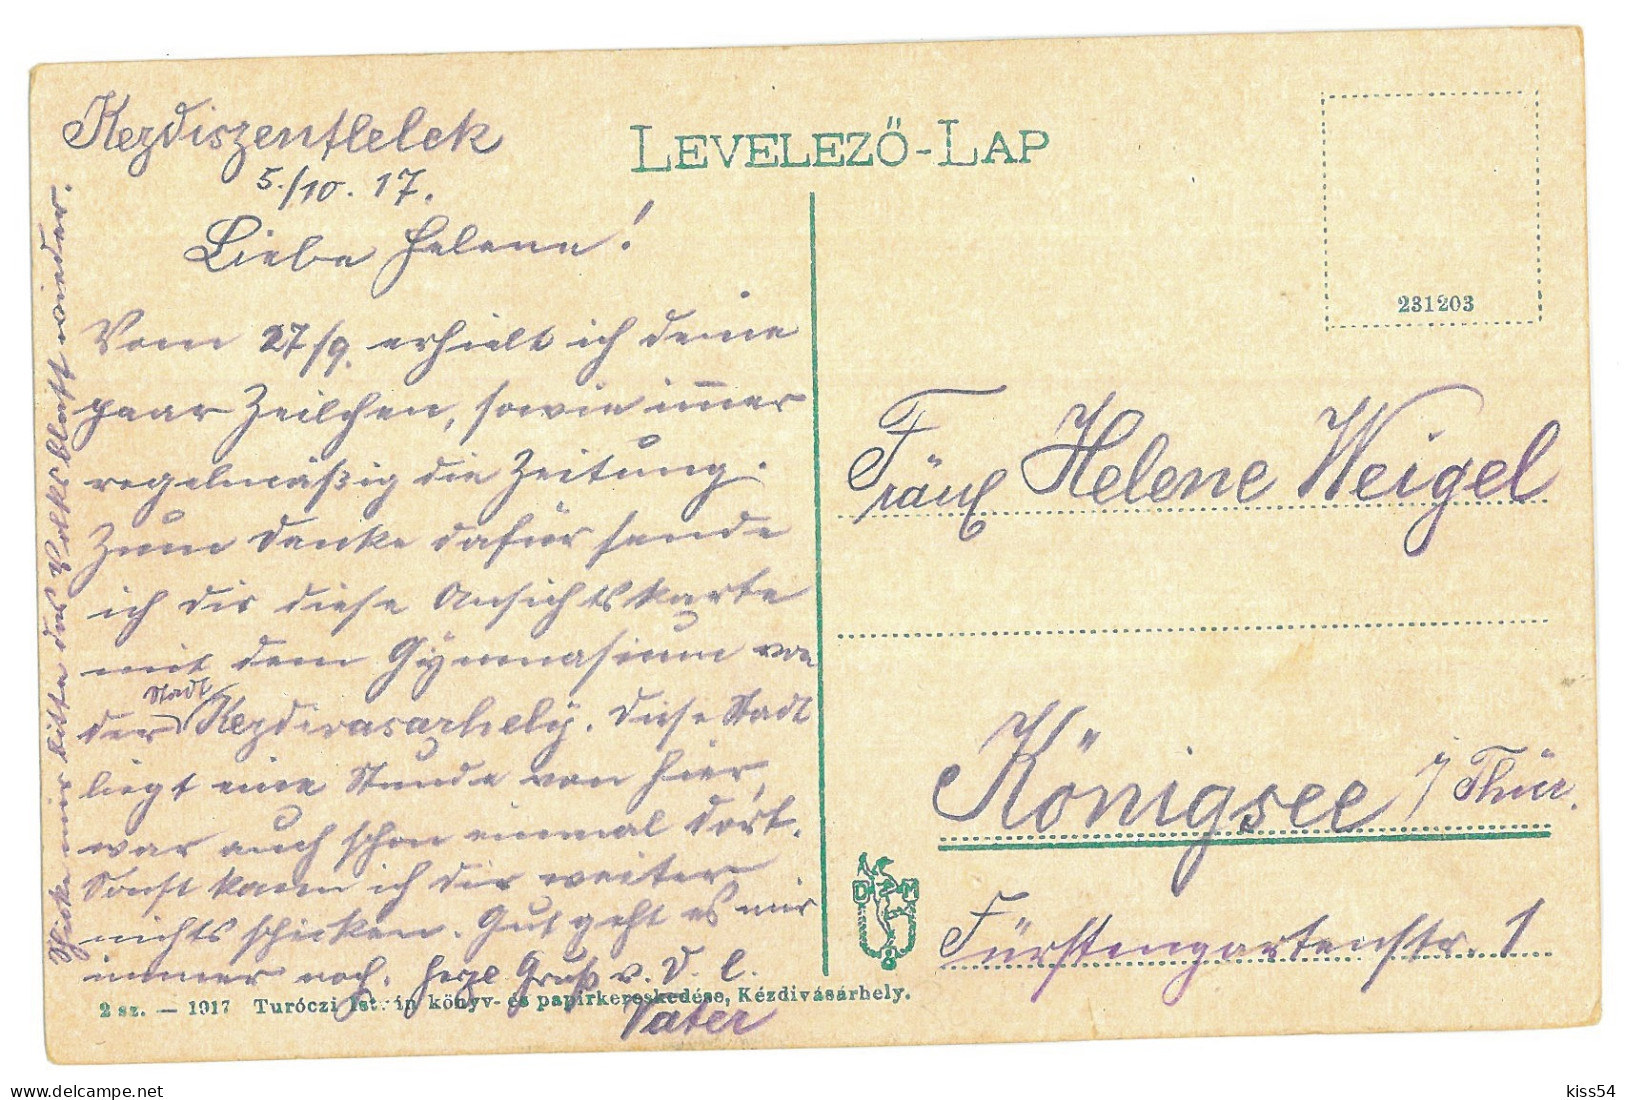 Kezdiszentlelek
5./10. 17.
LEVELEZŐ-LAP
231203
Liebe Helene!
Vom 27/9. erhielt ich deine
paar Zeilchen, sowie im̅er
regelmäßig die Zeitung.
Zum Danke dafür sende
ich dir diese Ansichtskarte
mit dem Gymnasium von
der Stadt Kezdivasarhely. Diese Stadt
liegt eine Stunde von hier,
war auch schon einmal dort.
Sonst kann ich dir weiter
nichts schicken. Gut geht es mir
immer noch. Herzl Gruß v. D. l.
Vater
Schicke mir bitte das Volksblatt wieder.
Fräul Helene Weigel
Königsee i/Thür.
Fürstengartenstr. 1
D M
2 sz. — 1917 Turóczi István könyv- és papirkereskedése, Kézdivásárhely.
kiss54